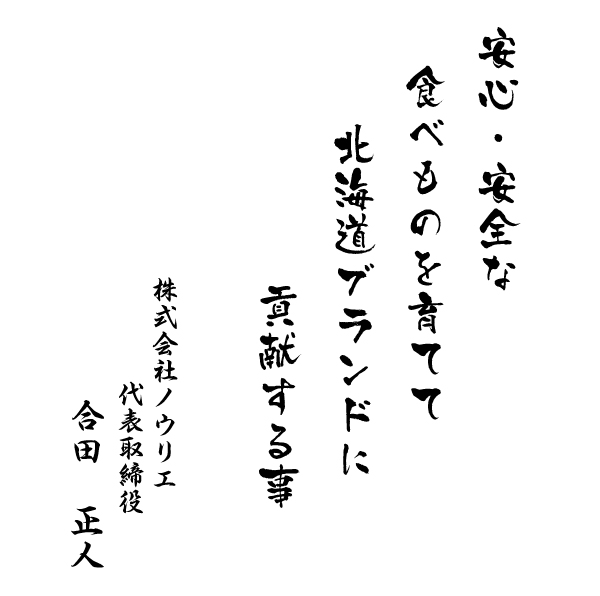 安心・安全な
食べものを育てて
北海道ブランドに
貢献する事
株式会社ノウリエ
代表取締役
合田 正人